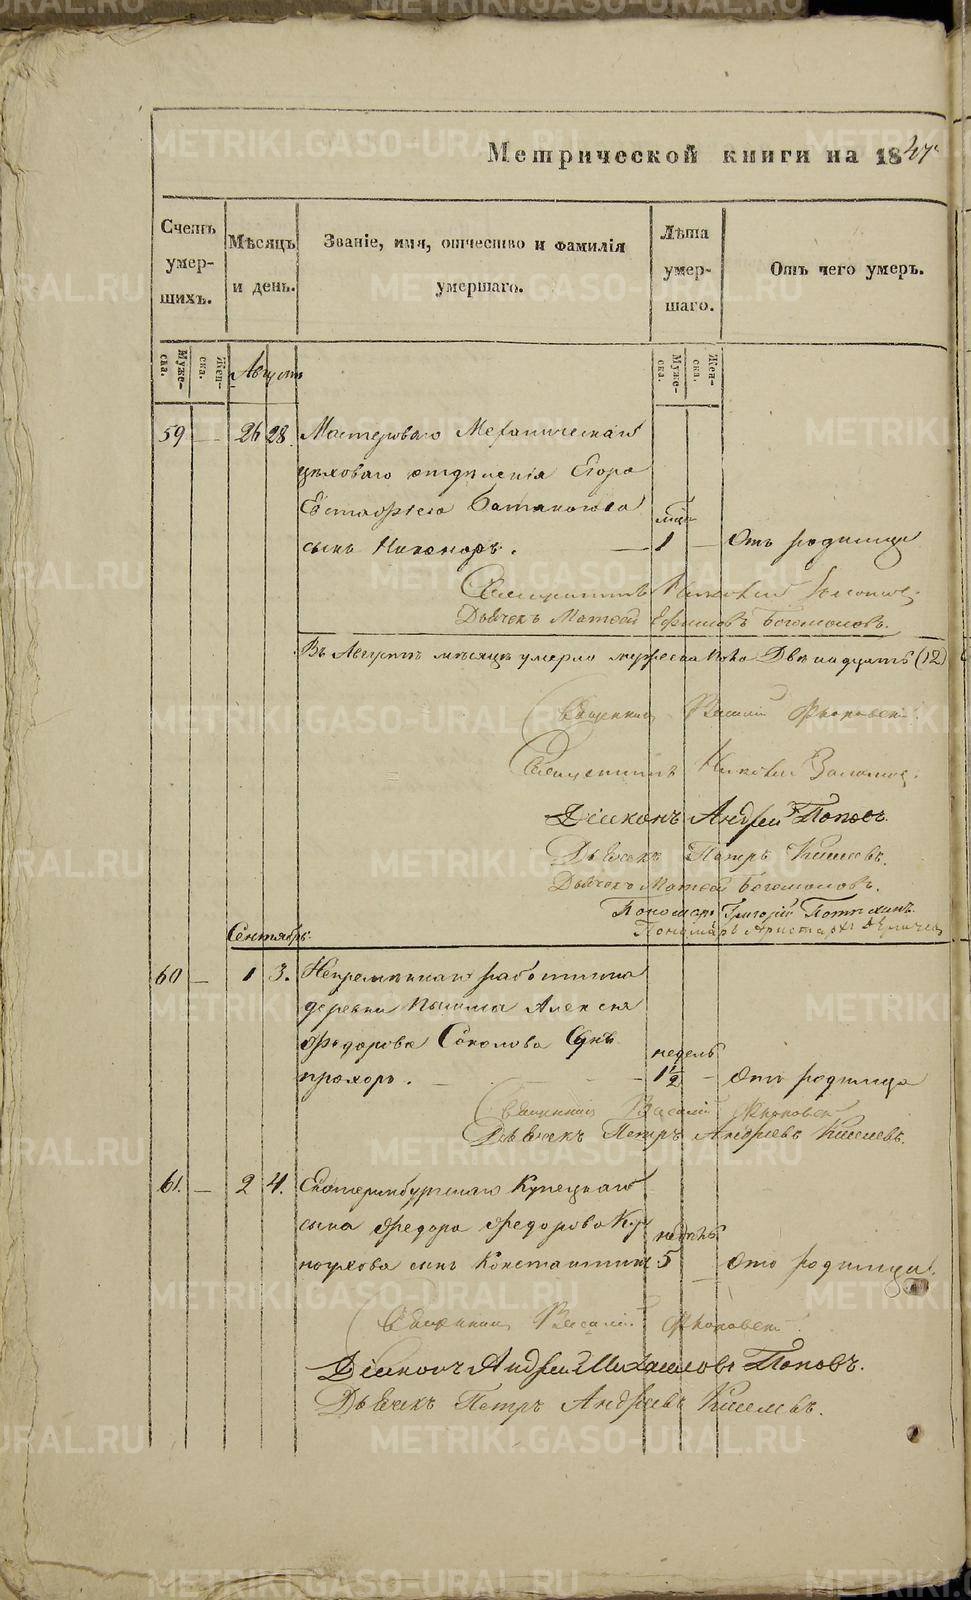 Метрической книги на 1847
Счетъ умер- шихъ.
Мѣсяцъ и день.
Званіе, имя, отчество и фамилія умершаго.
Лѣта умер- шаго.
Отъ чего умеръ.
Муже- ска.
Жен- ска.
Августъ
Муже- ска.
Жен- ска.
59 — 26 28. Мастероваго Механическаго
цѣховаго отдѣленія Егора
Евстафьева
сынъ Никоноръ. — 1 — Отъ родимца
Священникъ
Дьячекъ Матѳей Ефимовъ Богомоловъ.
Въ Августѣ мѣсяцѣ умерло мужеска пола Двѣнадцать (12)
Священникъ Василій
Священникъ
Діаконъ Андрей Поповъ.
Дьячекъ Петръ Киселевъ.
Дьячекъ Матѳей Богомоловъ.
Пономарь Григорій
Пономарь Аристархъ
Сентябрь.
60 — 1 3. Непремѣннаго работника
деревни Алексѣя
Ѳедорова Соколова Сынъ недель
Прохоръ. — 1½ — Отъ родимца
Священникъ Василій
Дьячекъ Петръ Андреевъ Киселевъ.
61. — 2 4. Екатеринбургскаго Купецкаго
сына Ѳедора Ѳедорова недель
сынъ Константинъ 5 — Отъ родимца.
Священникъ Василій
Діаконъ Андрей Михайловъ Поповъ.
Дьячекъ Петръ Андреевъ Киселевъ.
METRIKI.GASO-URAL.RU